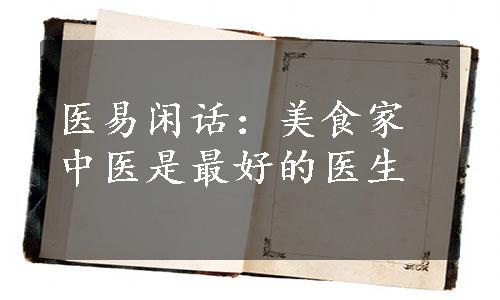 医易闲话：美食家
中医是最好的医生